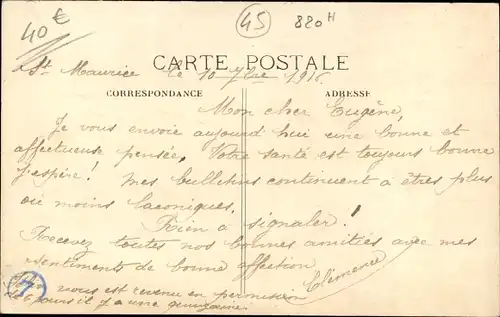 40€
45
820H
CARTE POSTALE
St Maurice le 10 7bre 1916.
CORRESPONDANCE ADRESSE
Mon cher Eugène,
Je vous envoie aujourd'hui une bonne et
affectueuse pensée. Votre santé est toujours bonne
j'espère! mes bulletins continuent à êtres plus
ou moins laconiques.
Rien à signaler!
Recevez toutes nos bonnes amitiés avec mes
sentiments de bonne affection
Clémence
nous est revenu en permission
de 6 jours il y a une quinzaine.